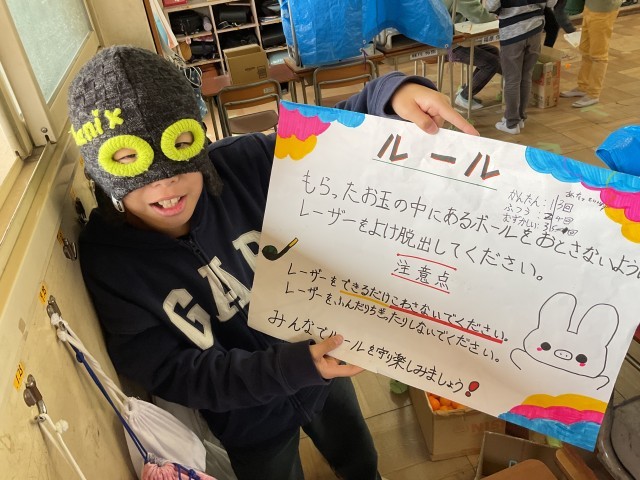 uni×
GAP
ルール
かんたん:1
ふつう:2
むずかしい:3
3回
もらったお玉の中にあるボールをおとさないよう
レーザーをよけ脱出してください。
注意点
レーザーをできるだけさわらないでください。
レーザーをふんだりちぎったりしないでください。
みんなでルールを守り楽しみましょう!